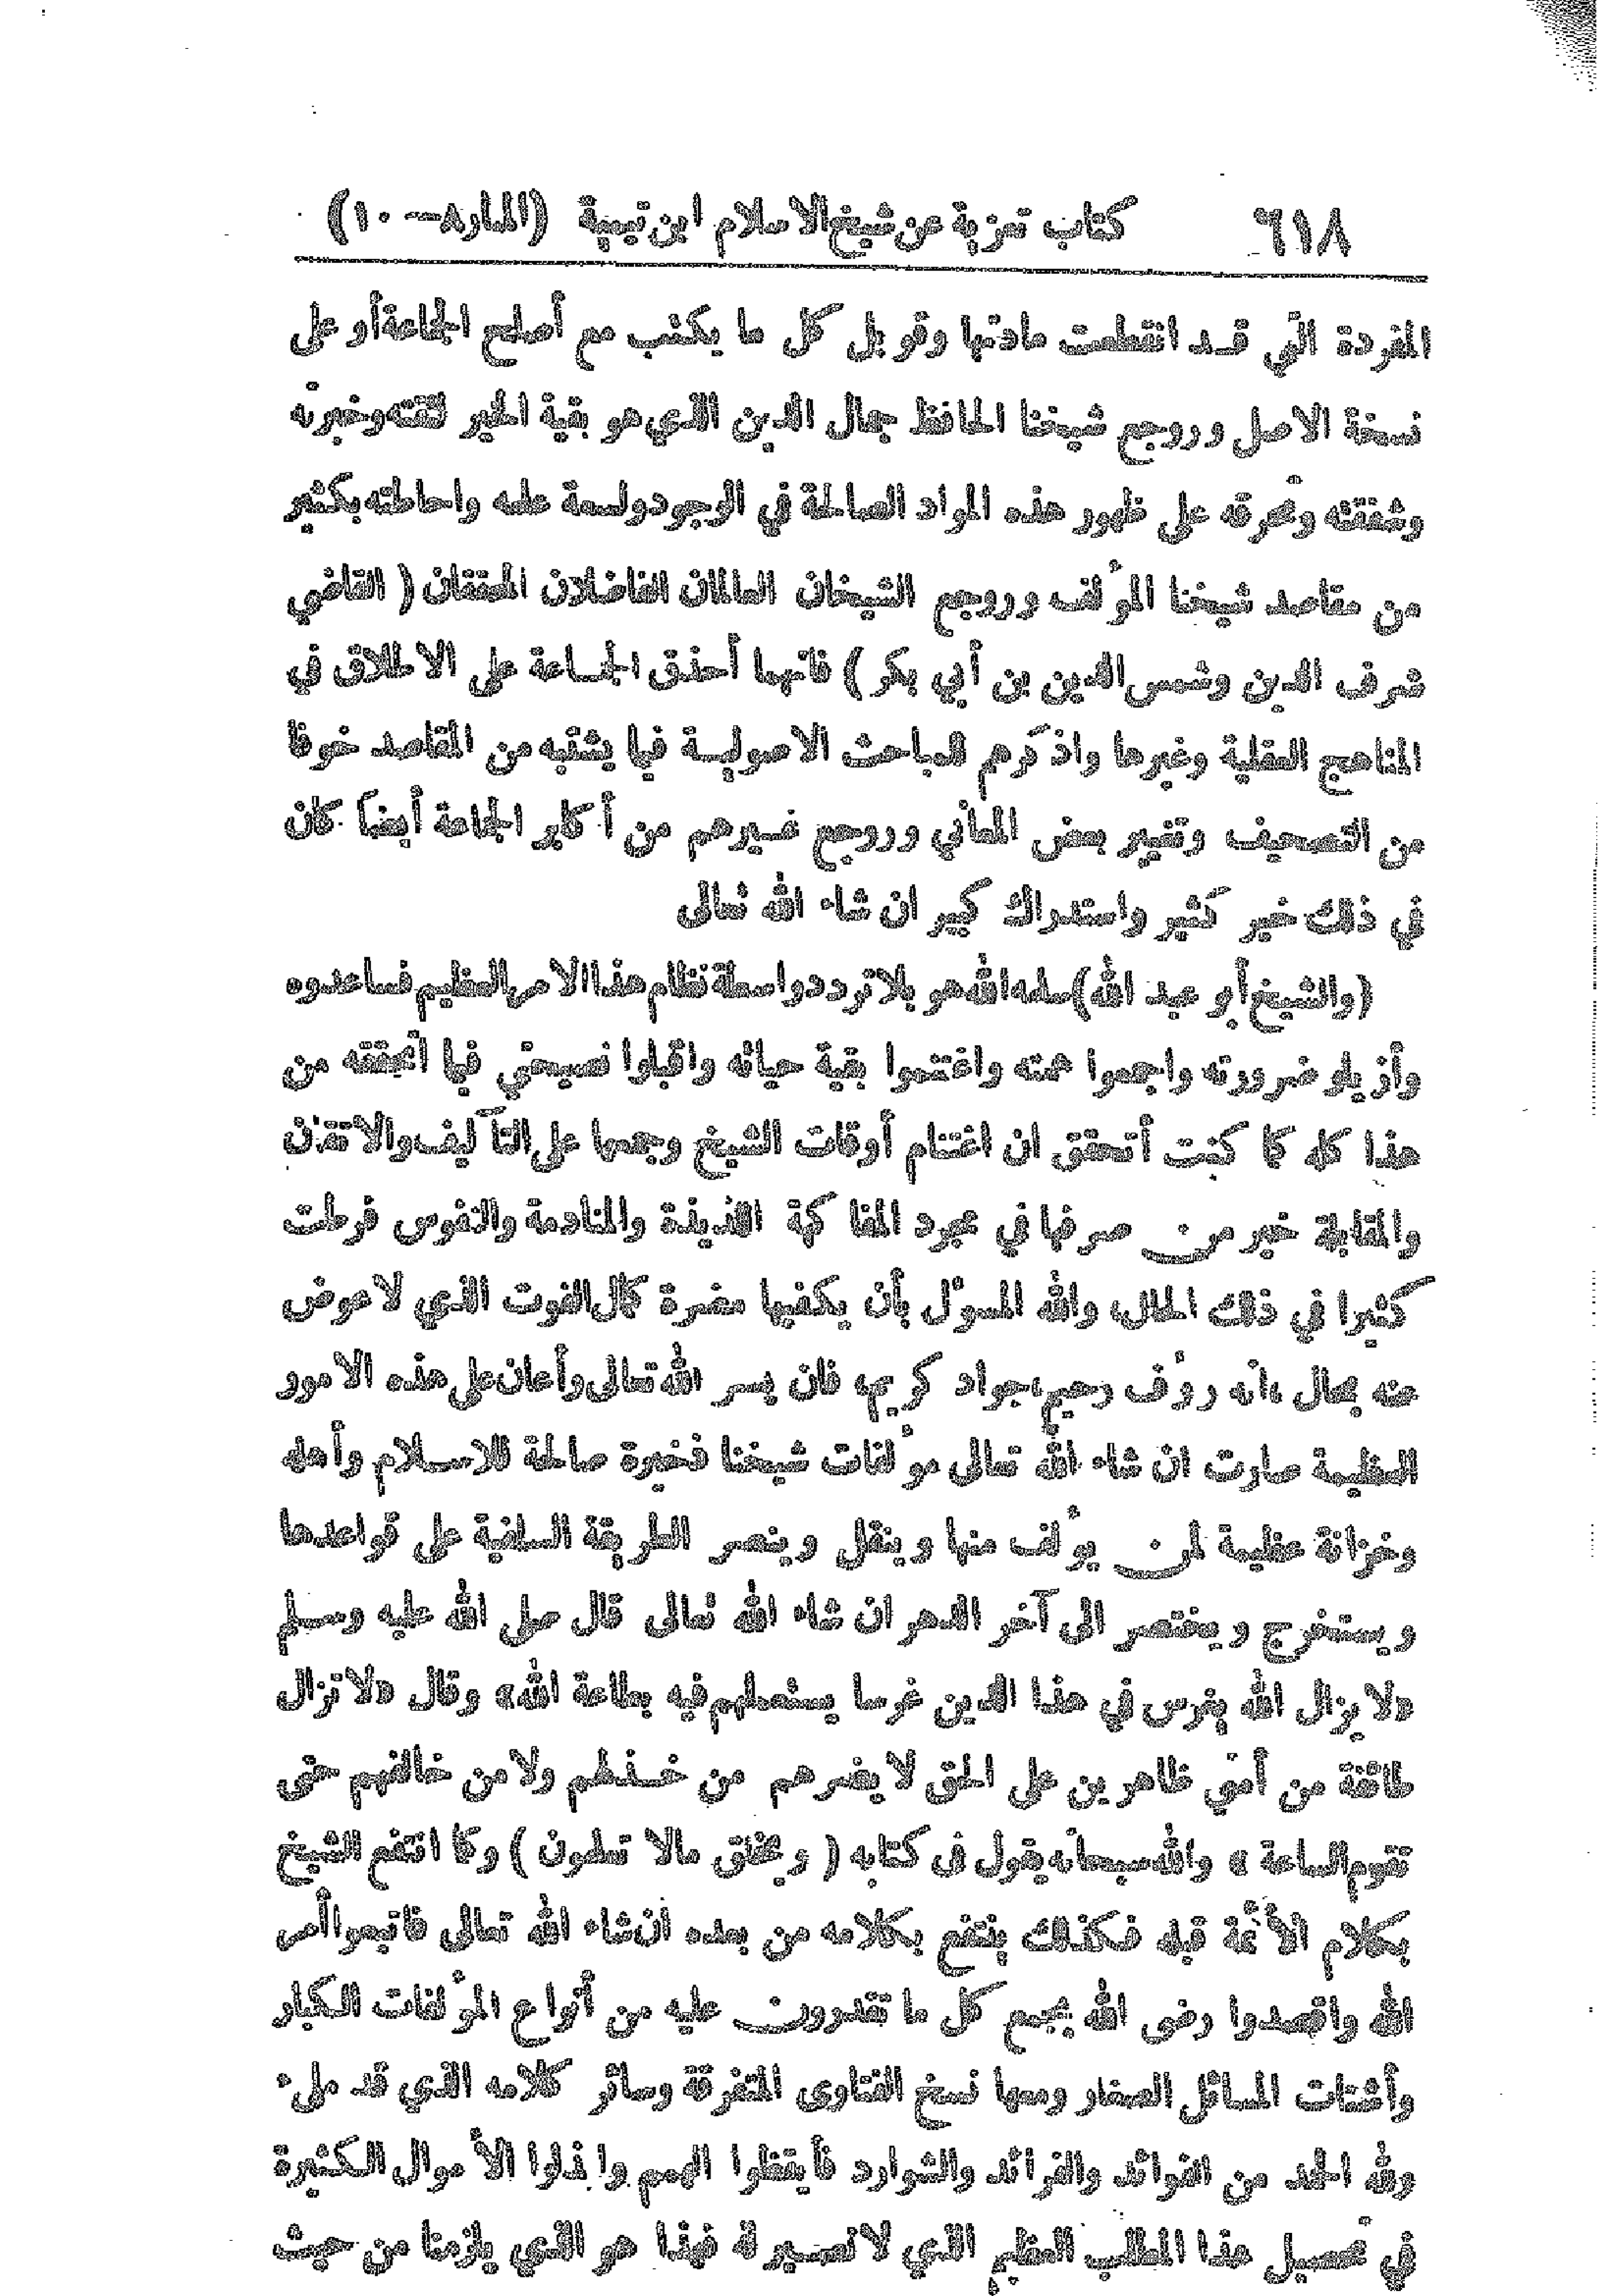 ٦١٨ كتاب تعزية عن شيخ الاسلام ابن تيمية (المنار ٨—١٠)
المفردة التي قد انقطعت مادتها وقوبل كل ما يكتب مع أصلح الجماعة أو على
نسخة الاصل وروجع شيخنا الحافظ جمال الدين الذي هو بقية الخير لثقته وخبرته
وشفقته وتحرقه على ظهور هذه المواد الصالحة في الوجود ولسعة علمه واحاطته بكثير
من مقاصد شيخنا المؤلف وروجع الشيخان العالمان الفاضلان المحققان ( القاضي
شرف الدين وشمس الدين بن أبي بكر ) فانهما أحذق الجماعة على الاطلاق في
المناهج العقلية وغيرها واذكرهم للمباحث الاصولية فيما يشتبه من المقاصد خوفا
من التصحيف وتغيير بعض المعاني وروجع غيرهم من أكابر الجماعة أيضاً كان
في ذلك خير كثير واستدراك كبير ان شاء الله تعالى
(والشيخ أبو عبد الله) سلمه الله هو بلا تردد واسطة نظام هذا الامر العظيم فساعدوه
وأزيلو ضرورته واجمعوا همته واغتنموا بقية حياته واقبلوا نصيحتي فيما أتحققه من
هذا كله كما كنت أتحقق ان اغتنام أوقات الشيخ وجمعها على التأليف والاتقان
والمقابلة خير من صرفها في مجرد المفاكهة اللذيذة والمنادمة والنفوس فرطت
كثيرا في ذلك الحال، والله المسؤل بأن يكفيها مضرة كمال الفوت الذي لا عوض
عنه بحال، انه رؤف رحيم، جواد كريم، فان يسر الله تعالى وأعان على هذه الامور
العظيمة صارت ان شاء الله تعالى مؤلفات شيخنا ذخيرة صالحة للاسلام وأهله
وخزانة عظيمة لمن يؤلف منها وينقل وينصر الطريقة السلفية على قواعدها
ويستخرج ويختصر الى آخر الدهر ان شاء الله تعالى قال صلى الله عليه وسلم
«لا يزال الله يغرس في هذا الدين غرسا يستعملهم فيه بطاعة الله» وقال «لا تزال
طائفة من أمتي ظاهرين على الحق لا يضرهم من خذلهم ولا من خالفهم حتى
تقوم الساعة » والله سبحانه يقول في كتابه ( ويخلق مالا تعلمون ) وكما انتفع الشيخ
بكلام الأئمة قبله فكذلك ينتفع بكلامه من بعده ان شاء الله تعالى فاتبعوا أمر
الله واقصدوا رضى الله بجمع كل ما تقدرون عليه من أنواع المؤلفات الكبار
وأشتات المسائل الصغار ومعها نسخ الفتاوى المتفرقة وسائر كلامه الذي قد ملئ
ولله الحمد من الفوائد والفرائد والشوارد فأيقظوا الهمم وابذلوا الأموال الكثيرة
في تحصيل هذا المطلب العظيم الذي لا نصير له فهذا هو الذي يلزمنا من حيث